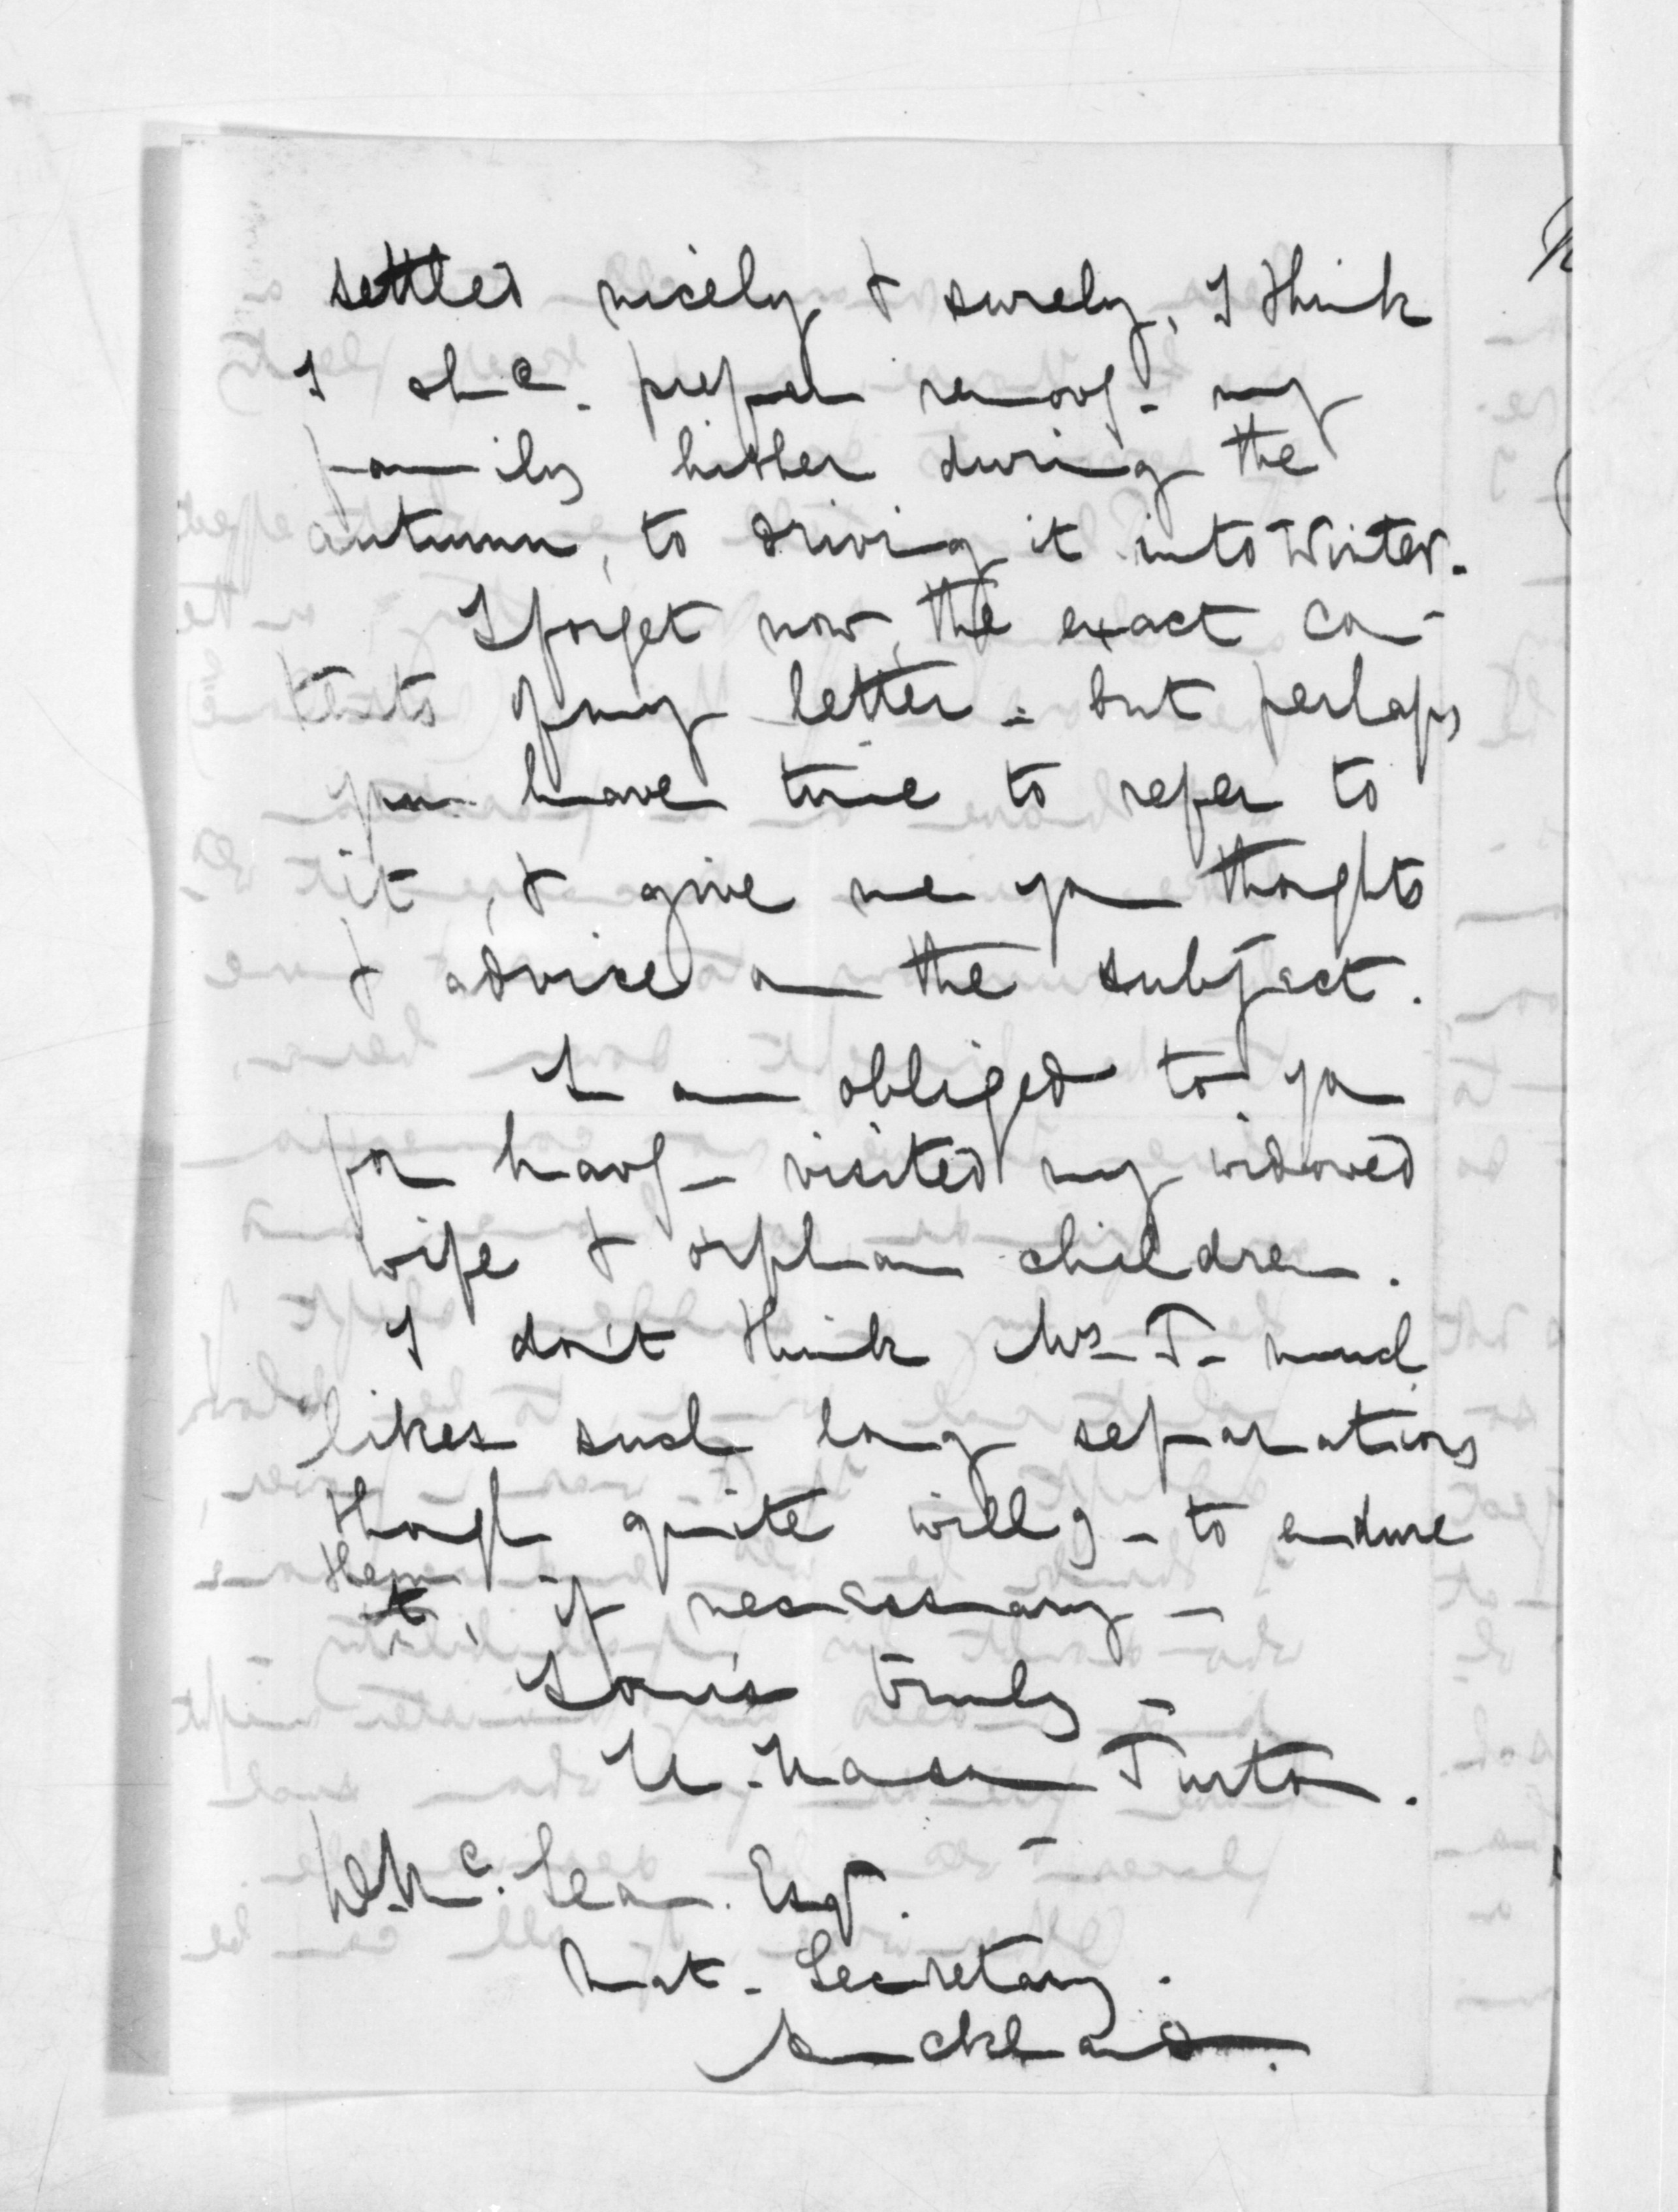 settled nicely & surely, I think
I shd. prefer removg. my
family hither during the
autumn, to driving it into Winter.
I forget now, the exact con-
tents of my letter - but perhaps
you have time to refer to
it, & give me you thoughts
& advice on the subject.
I am obliged to you
for havg - visited my widowed
wife & orphan children.
I don't think Mrs T- much
likes such long separations
though quite willg - to endure
them, if necessary -
Yours truly -
H. Hanson Turton.
D. McLean. Esqr.
Nat. Secretary.
Auckland.